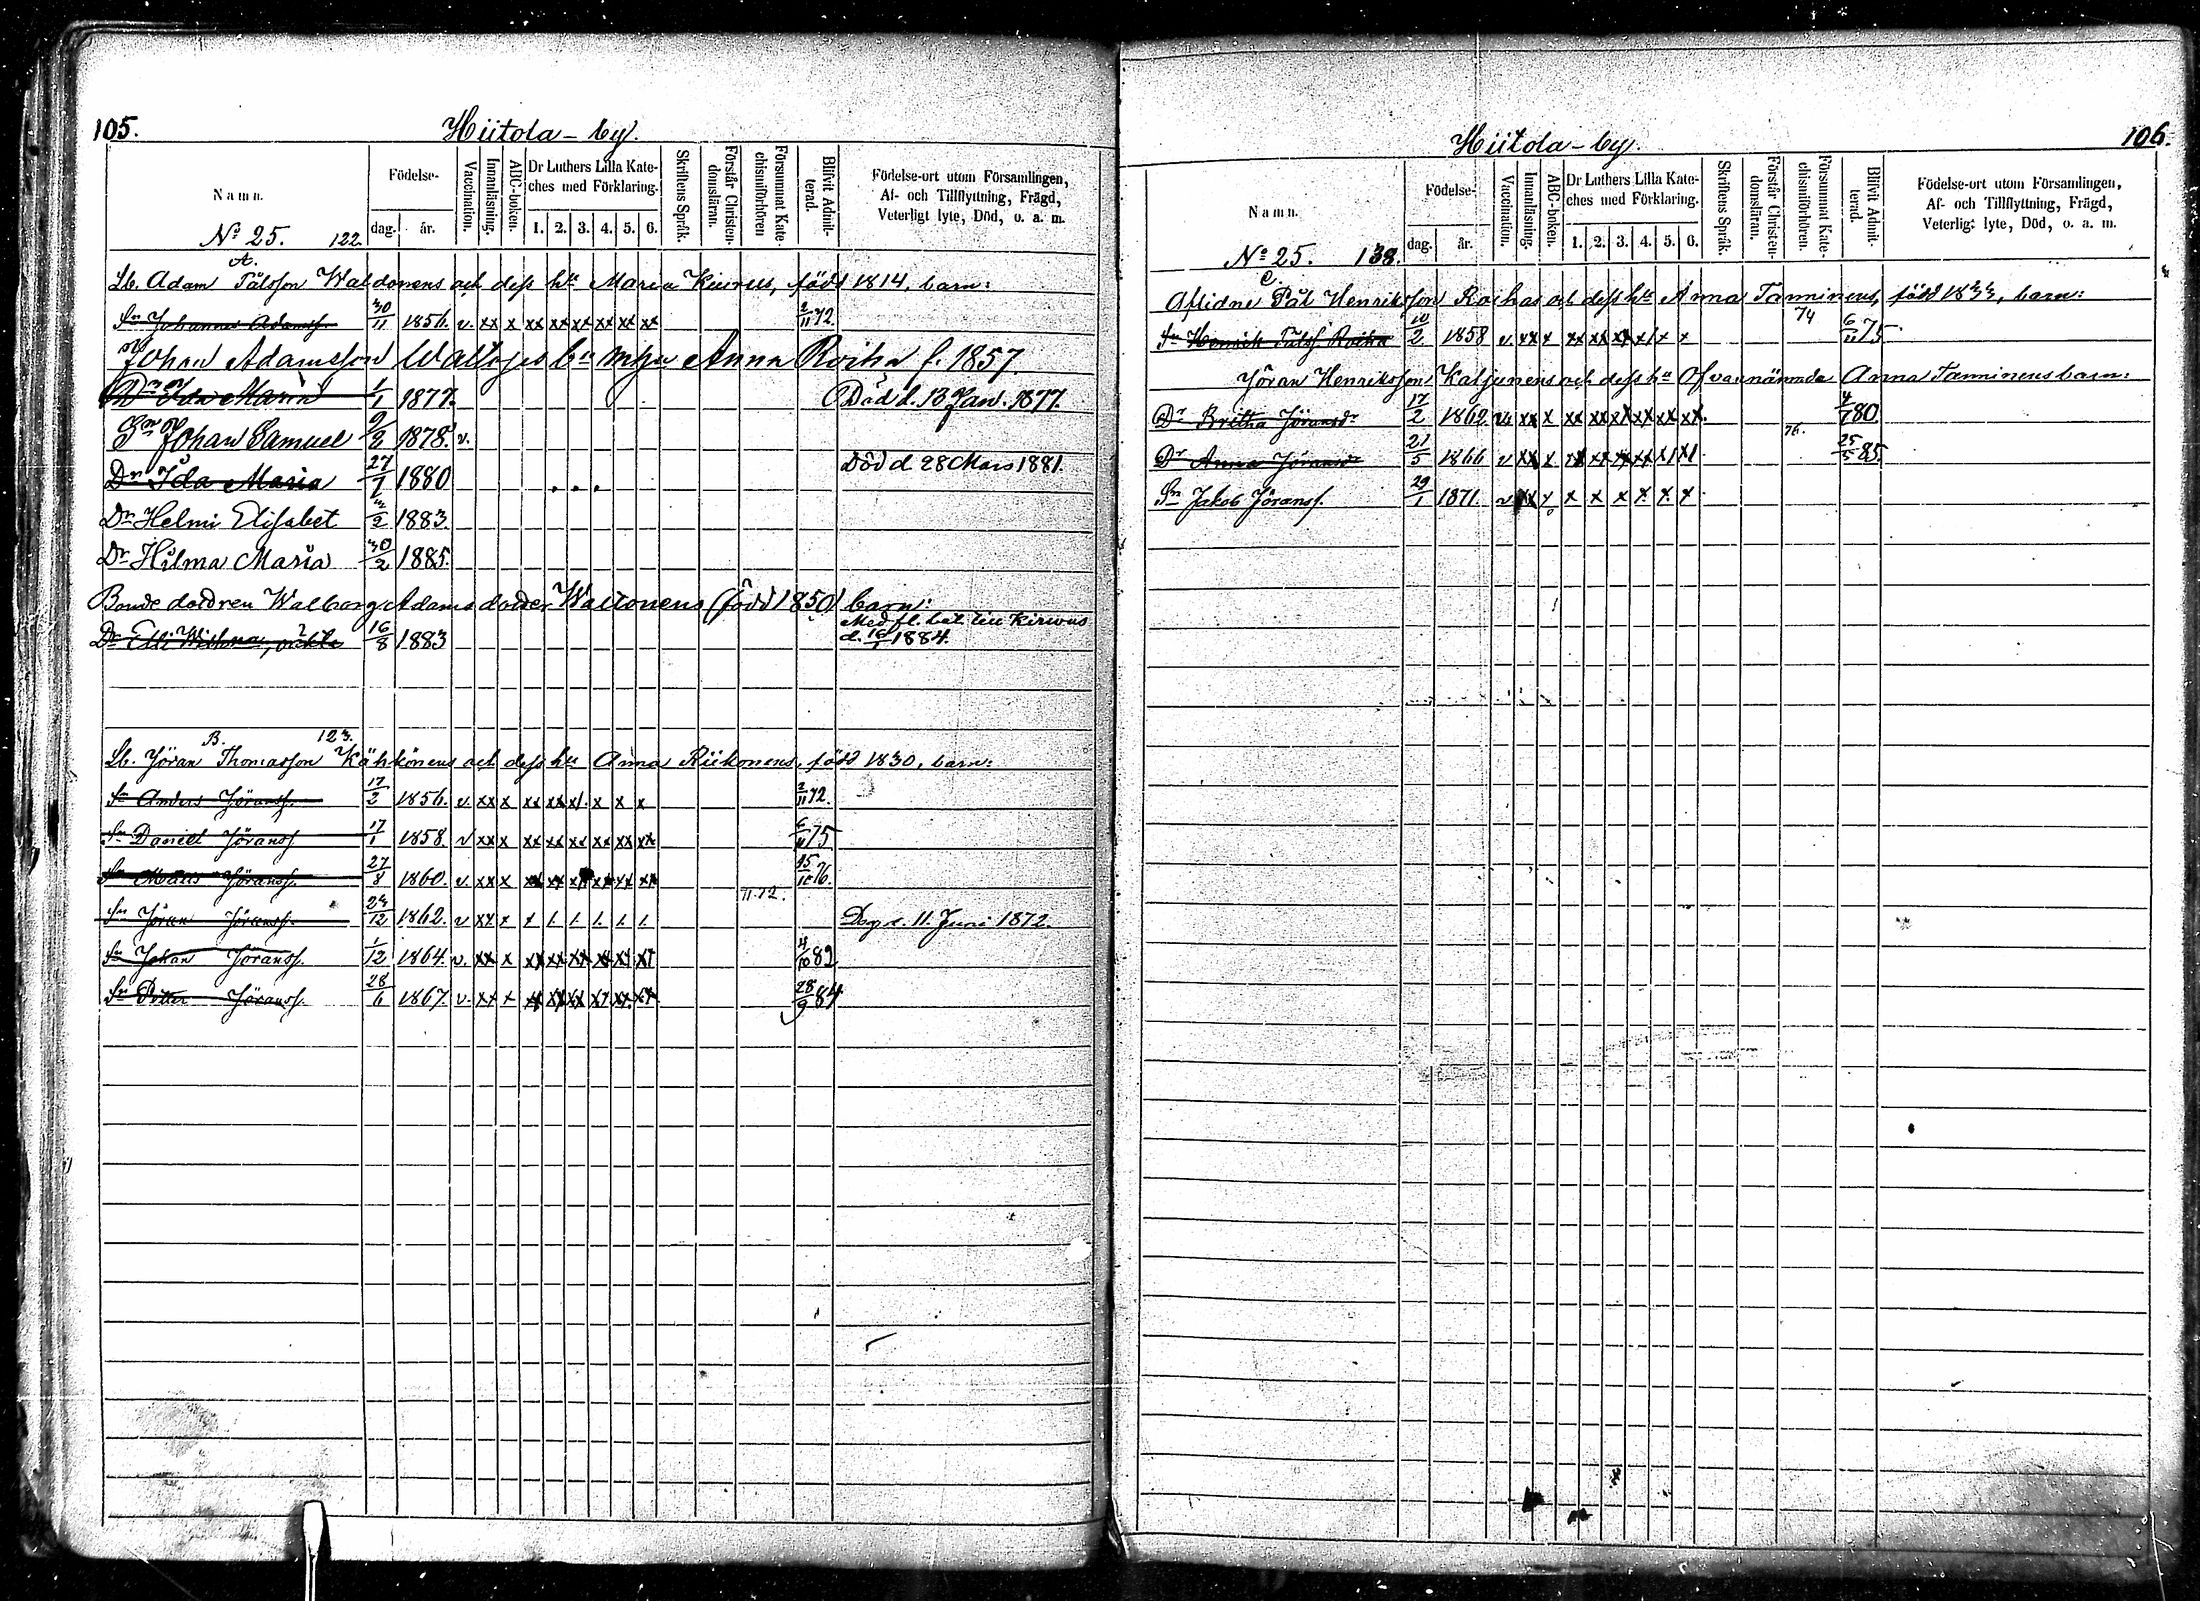 105.
Hiitola - by.
Namn.
Födelse-
dag. år.
Vaccination.
Innanläsning.
ABC-boken.
Dr Luthers Lilla Kate-
ches med Förklaring.
1. 2. 3. 4. 5. 6.
Skriftens Språk.
Förstår Christen-
domsläran.
Försummat Kate-
chismiförhören
Blifvit Admit-
terad.
Födelse-ort utom Församlingen,
Af- och Tillflyttning, Frägd,
Veterligt lyte, Död, o. a. m.
No 25. 122.
A.
Lb. Adam Pålsson Waldonens och dess hu Maria Kiurus, född 1814, barn:
Sn Johannes Adamss. 30/11 1856. v. xx x xx xx xx xx xx xx 2/11 72.
Johan Adamsson Waltojes bn Anna Roiha f. 1857.
Dr Ida Maria 1/1 1877. Död d. 13 Jan. 1877.
Sn Johan Samuel 9/2 1878. v.
Dr Ida Maria 27/1 1880 Död d. 28 Mars 1881.
Dr Helmi Elisabet 1883.
Dr Hilma Maria 1885.
Bonde dottren Walborg Adamsdotter Waltonens (född 1850) barn:
Dr Elli 16/8 1883 Med fl. bet. till Kirvus
d. 1884.
B. 123.
Lb. Jöran Thomasson Kähkönens och dess hu Anna Riikonens, född 1830, barn:
Sn Anders Jöranss. 17/2 1856. v. xx x xx xx x/. x x x 2/11 72.
Sn Daniel Jöranss. 17/1 1858. v xx x xx xx xx xx xx xx 6/11 75
Sn Matts Jöranss. 27/8 1860. v. xx x xx xx xx xx xx xx 15/10 76.
71.72.
Sn Jöran Jöranss. 1862. v xx x x /. /. /. /. /. Dog d. 11. Juni 1872.
Sn Johan Jöranss. 1/12 1864. v. xx x xx xx xx xx xx xx 4/10 82
Sn Petter Jöranss. 28/6 1867. v. xx x xx xx xx xx xx xx 28/9 84.
106.
Hiitola - by.
Namn.
Födelse-
dag. år.
Vaccination.
Innanläsning.
ABC-boken.
Dr Luthers Lilla Kate-
ches med Förklaring.
1. 2. 3. 4. 5. 6.
Skriftens Språk.
Förstår Christen-
domsläran.
Försummat Kate-
chismiförhören.
Blifvit Admit-
terad.
Födelse-ort utom Församlingen,
Af- och Tillflyttning, Frägd,
Veterligt lyte, Död, o. a. m.
No 25. 138.
C.
Aflidne Pål Henriksson Roihas och dess hu Anna Tanninens, född 1833, barn:
74
Sn Henrik Pålss. Roiha 10/2 1858 v xx x xx xx xx x/ x x 6/11 75.
Jöran Henriksson Katjunens och dess hu Ofvannämnda Anna Tanninens barn:
Dr Britha Jöransdr 17/2 1862. v. xx x xx xx xx xx xx xx. 4/7 80.
76.
Dr Anna Jöransdr 21/5 1866 v xx x xx xx xx xx x/ x/ 25/5 85.
Sn Jakob Jöranss. 29/1 1871. v xx x x x x x x x